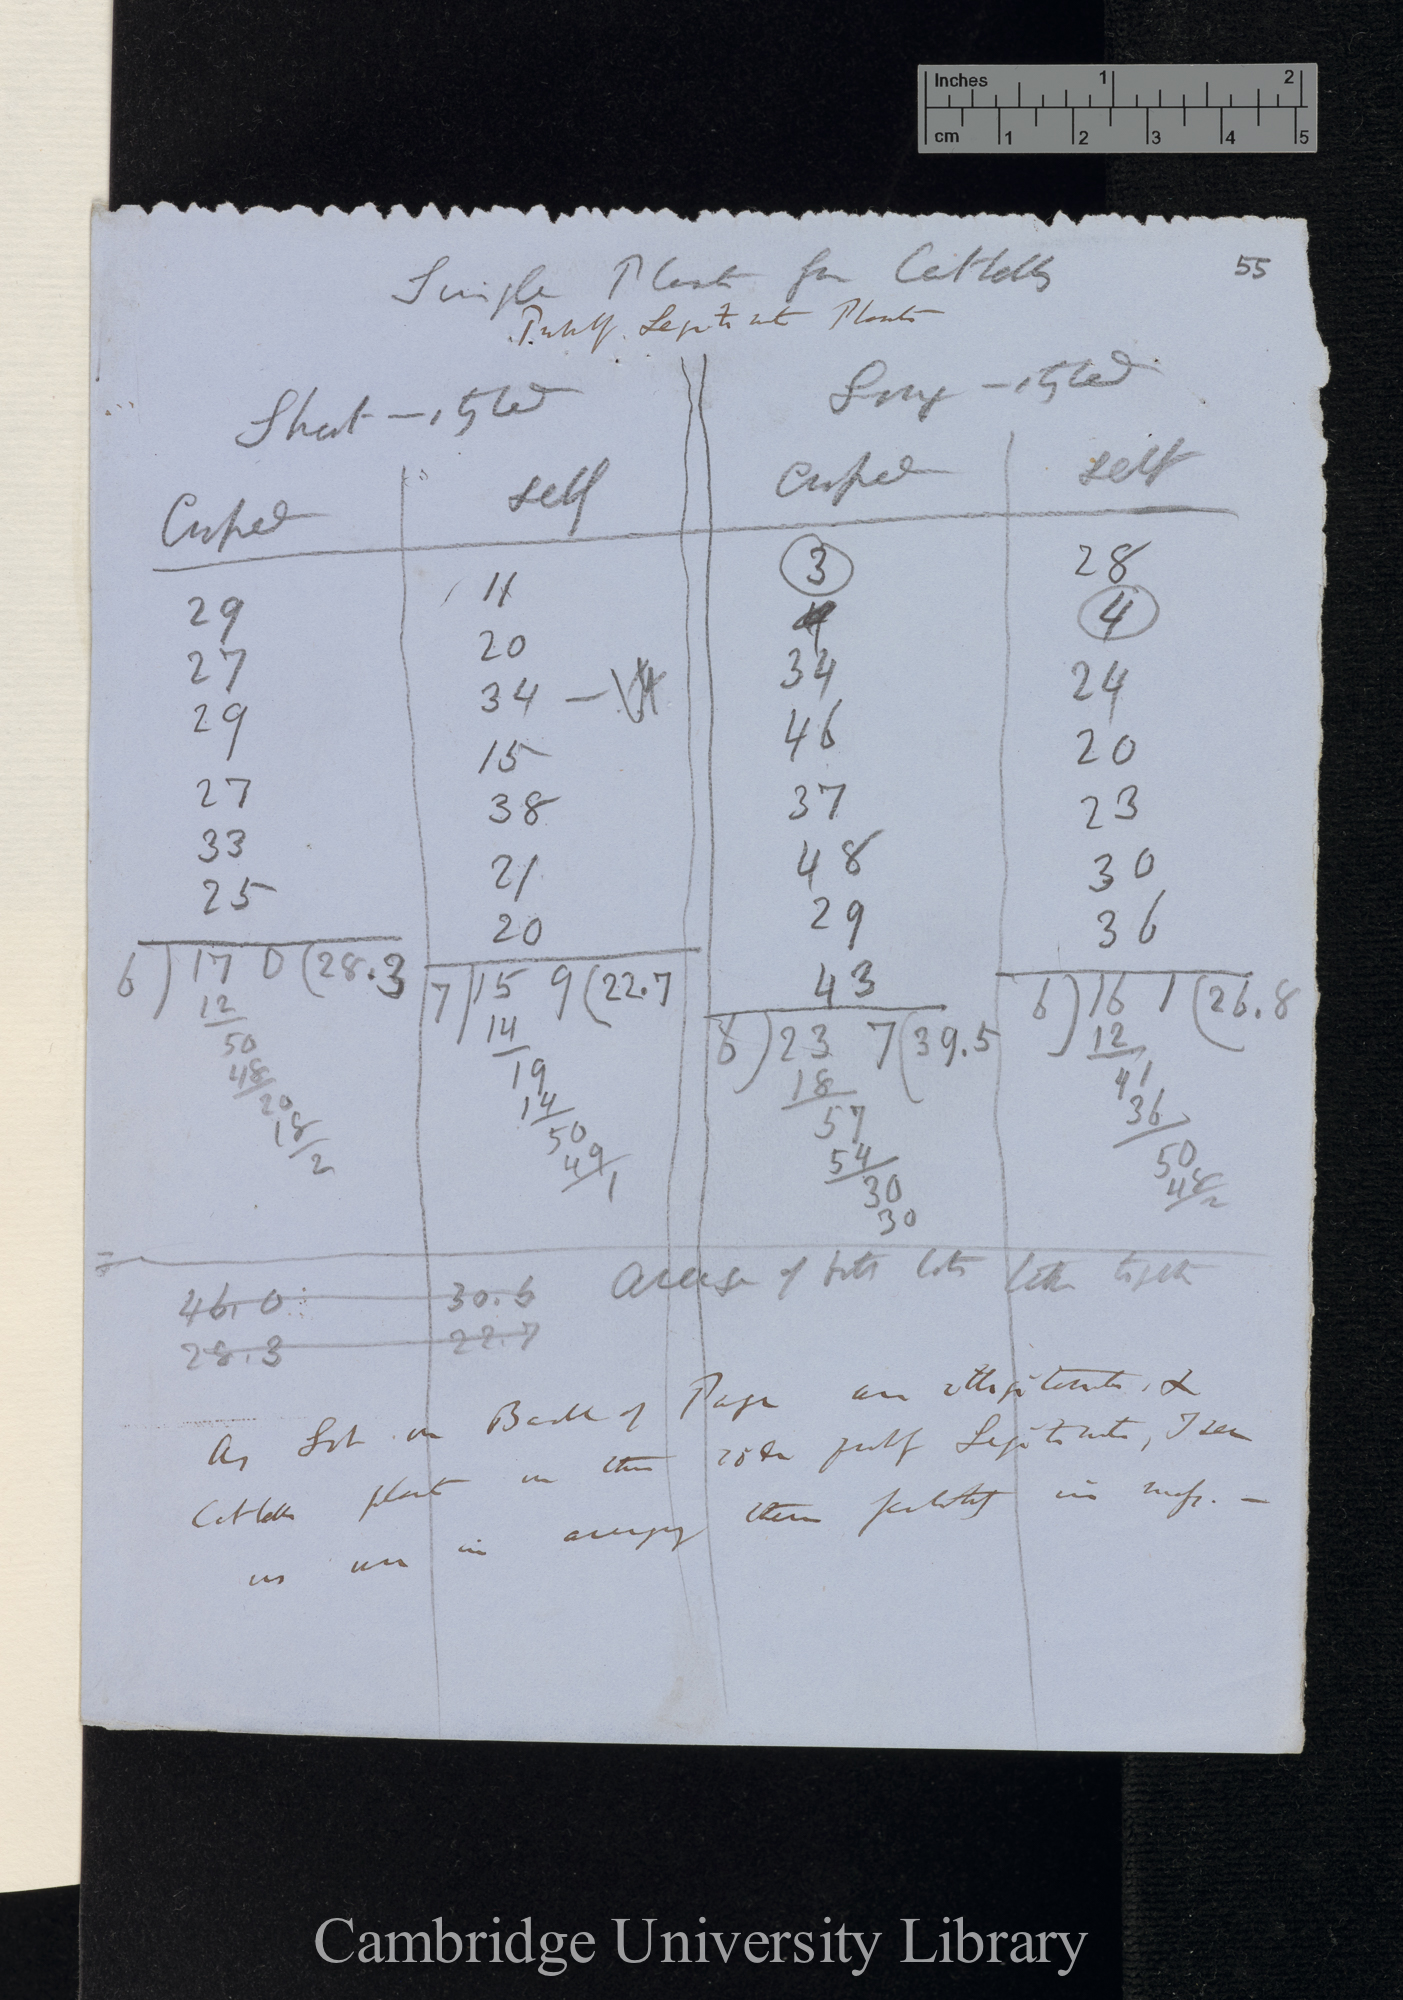 Inches 1 2
cm 1 2 3 4 5
55
Single Plant for Catalls
Purely Legitimate Plants
Short-styled Long-styled
Crossed self Crossed self
29 11 3 28
27 20 4 4
29 34 — 34 24
27 15 46 20
33 38 37 23
25 21 48 30
20 29 36
43
6)170(28.3 7)159(22.7 6)237(39.5 6)161(26.8
12 14 18 12
50 19 57 41
48 14 54 36
20 50 30 50
18 49 30 48
2 1 2
46.0 30.6 Average of both lots taken together
28.3 22.7
As Lot on Back of Page are illegitimate, &
plants in this side purely Legitimate, I see
no use in averaging them